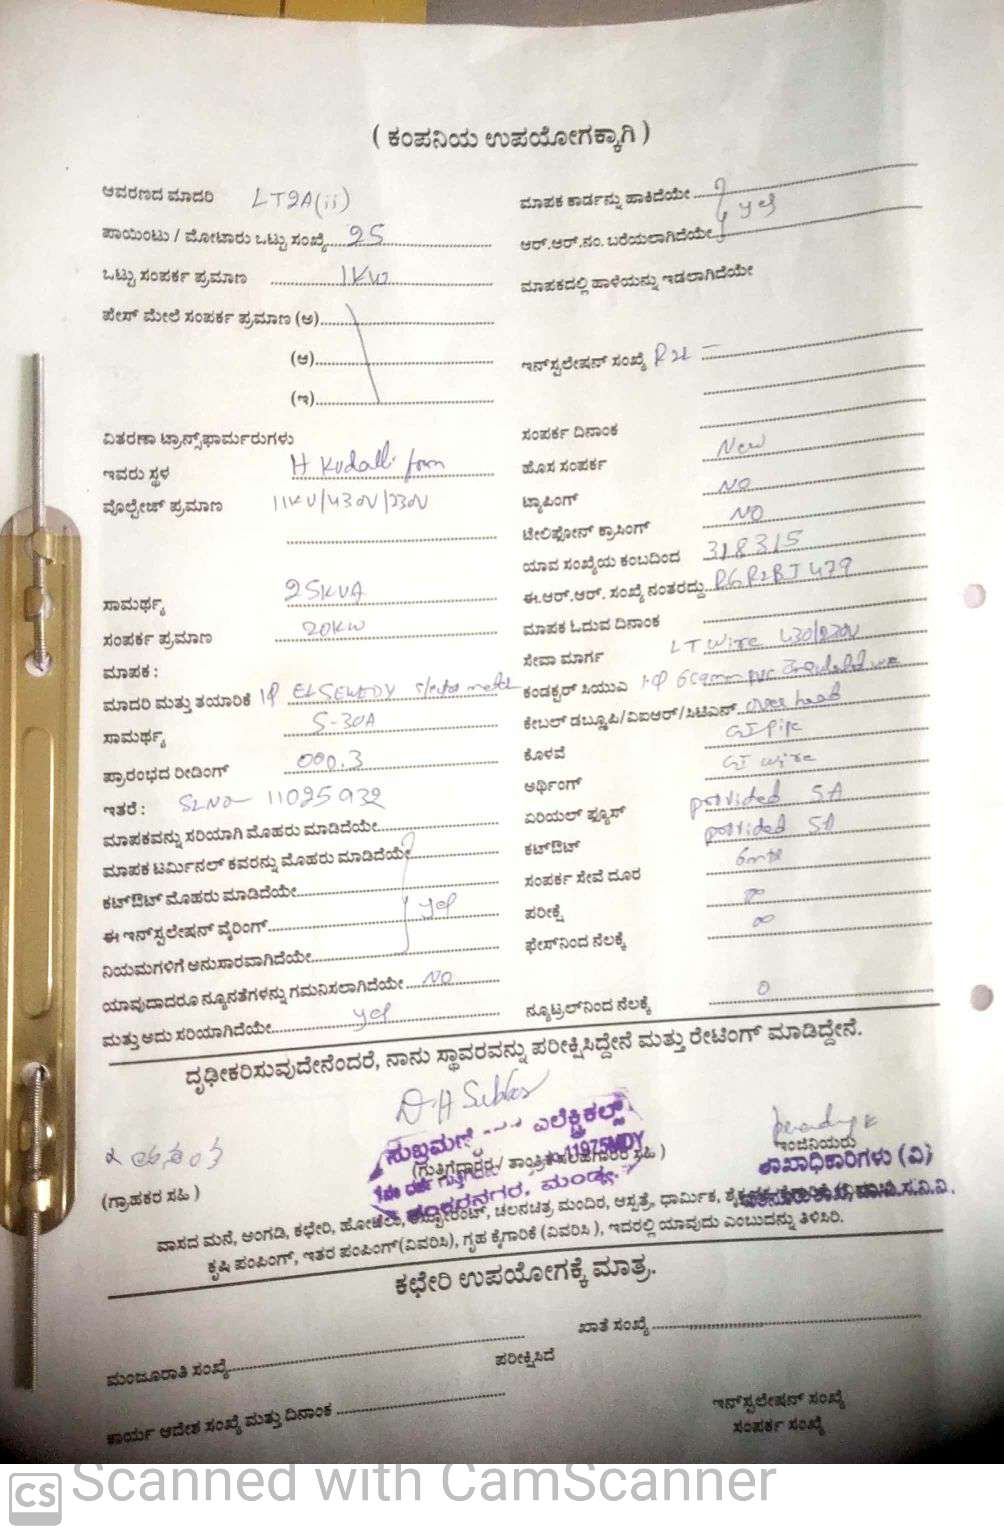 ( ಕಂಪನಿಯ ಉಪಯೋಗಕ್ಕಾಗಿ )
ಆವರಣದ ಮಾದರಿ LT2A(ii)
ಪಾಯಿಂಟು / ಮೋಟಾರು ಒಟ್ಟು ಸಂಖ್ಯೆ 2S
ಒಟ್ಟು ಸಂಪರ್ಕ ಪ್ರಮಾಣ 1KW
ಪೇಸ್ ಮೇಲೆ ಸಂಪರ್ಕ ಪ್ರಮಾಣ (ಅ)
(ಆ)
(ಇ)
ವಿತರಣಾ ಟ್ರಾನ್ಸ್‌ಫಾರ್ಮರುಗಳು
ಇವರು ಸ್ಥಳ H Kudalli form
ವೊಲ್ಟೇಜ್ ಪ್ರಮಾಣ 11KV/430V/230V
ಸಾಮರ್ಥ್ಯ 25KVA
ಸಂಪರ್ಕ ಪ್ರಮಾಣ 20KW
ಮಾಪಕ :
ಮಾದರಿ ಮತ್ತು ತಯಾರಿಕೆ 1φ ELSEWEDY
ಸಾಮರ್ಥ್ಯ 5-30A
ಪ್ರಾರಂಭದ ರೀಡಿಂಗ್ 000.3
ಇತರೆ : SLNO- 11025932
ಮಾಪಕವನ್ನು ಸರಿಯಾಗಿ ಮೊಹರು ಮಾಡಿದೆಯೇ
ಮಾಪಕ ಟರ್ಮಿನಲ್ ಕವರನ್ನು ಮೊಹರು ಮಾಡಿದೆಯೇ
ಕಟ್‌ಔಟ್ ಮೊಹರು ಮಾಡಿದೆಯೇ
ಈ ಇನ್‌ಸ್ಟಲೇಷನ್ ವೈರಿಂಗ್ yes
ನಿಯಮಗಳಿಗೆ ಅನುಸಾರವಾಗಿದೆಯೇ
ಯಾವುದಾದರೂ ನ್ಯೂನತೆಗಳನ್ನು ಗಮನಿಸಲಾಗಿದೆಯೇ NO
ಮತ್ತು ಅದು ಸರಿಯಾಗಿದೆಯೇ yes
ಮಾಪಕ ಕಾರ್ಡನ್ನು ಹಾಕಿದೆಯೇ yes
ಆರ್.ಆರ್.ನಂ. ಬರೆಯಲಾಗಿದೆಯೇ
ಮಾಪಕದಲ್ಲಿ ಹಾಳೆಯನ್ನು ಇಡಲಾಗಿದೆಯೇ
ಇನ್‌ಸ್ಟಲೇಷನ್ ಸಂಖ್ಯೆ
ಸಂಪರ್ಕ ದಿನಾಂಕ
ಹೊಸ ಸಂಪರ್ಕ New
ಟ್ಯಾಪಿಂಗ್ NO
ಟೇಲಿಫೋನ್ ಕ್ರಾಸಿಂಗ್ NO
ಯಾವ ಸಂಖ್ಯೆಯ ಕಂಬದಿಂದ 318315
ಈ.ಆರ್.ಆರ್. ಸಂಖ್ಯೆ ನಂತರದ್ದು
ಮಾಪಕ ಓದುವ ದಿನಾಂಕ
ಸೇವಾ ಮಾರ್ಗ LT wire 430/230V
ಕಂಡಕ್ಟರ್ ಸಿಯುಎ 1φ 6sqmm pvc Insulated wire
ಕೇಬಲ್ ಡಬ್ಲ್ಯೂಪಿ/ವಿಐಆರ್/ಸಿಟಿಎಸ್ over head
ಕೊಳವೆ GI Pipe
ಅರ್ಥಿಂಗ್ GI wire
ಏರಿಯಲ್ ಫ್ಯೂಸ್ provided 5A
ಕಟ್‌ಔಟ್ provided 5A
ಸಂಪರ್ಕ ಸೇವೆ ದೂರ 6mts
ಪರೀಕ್ಷೆ ∞
ಫೇಸ್‌ನಿಂದ ನೆಲಕ್ಕೆ ∞
ನ್ಯೂಟ್ರಲ್‌ನಿಂದ ನೆಲಕ್ಕೆ 0
ದೃಢೀಕರಿಸುವುದೇನೆಂದರೆ, ನಾನು ಸ್ಥಾವರವನ್ನು ಪರೀಕ್ಷಿಸಿದ್ದೇನೆ ಮತ್ತು ರೇಟಿಂಗ್ ಮಾಡಿದ್ದೇನೆ.
ಎಲೆಕ್ಟ್ರಿಕಲ್ಸ್
11975MDY
(ಗ್ರಾಹಕರ ಸಹಿ )
(ಗುತ್ತಿಗೆದಾರರ/ ಸಹಿ )
ಶಂಕರನಗರ, ಮಂಡ್ಯ.
ಇಂಜಿನಿಯರು
ಶಾಖಾಧಿಕಾರಿಗಳು (ವಿ)
ವಾಸದ ಮನೆ, ಅಂಗಡಿ, ಕಛೇರಿ, ಹೋಟೆಲು, ರೆಸ್ಟೋರೆಂಟ್, ಚಲನಚಿತ್ರ ಮಂದಿರ, ಆಸ್ಪತ್ರೆ, ಧಾರ್ಮಿಕ,
ಕೃಷಿ ಪಂಪಿಂಗ್, ಇತರ ಪಂಪಿಂಗ್(ವಿವರಿಸಿ), ಗೃಹ ಕೈಗಾರಿಕೆ (ವಿವರಿಸಿ ), ಇದರಲ್ಲಿ ಯಾವುದು ಎಂಬುದನ್ನು ತಿಳಿಸಿರಿ.
ಕಛೇರಿ ಉಪಯೋಗಕ್ಕೆ ಮಾತ್ರ.
ಖಾತೆ ಸಂಖ್ಯೆ
ಮಂಜೂರಾತಿ ಸಂಖ್ಯೆ
ಪರೀಕ್ಷಿಸಿದೆ
ಕಾರ್ಯ ಆದೇಶ ಸಂಖ್ಯೆ ಮತ್ತು ದಿನಾಂಕ
ಇನ್‌ಸ್ಟಲೇಷನ್ ಸಂಖ್ಯೆ
ಸಂಪರ್ಕ ಸಂಖ್ಯೆ
CS Scanned with CamScanner